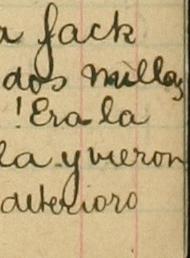 a Jack
dos millas
! Era la
la y vieron
deterioro